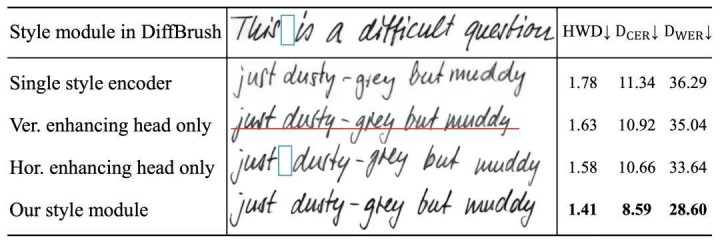 Style module in DiffBrush This is a difficult question HWD↓ D_CER↓ D_WER↓
Single style encoder just dusty-grey but muddy 1.78 11.34 36.29
Ver. enhancing head only just dusty-grey but muddy 1.63 10.92 35.04
Hor. enhancing head only just dusty-grey but muddy 1.58 10.66 33.64
Our style module just dusty-grey but muddy 1.41 8.59 28.60